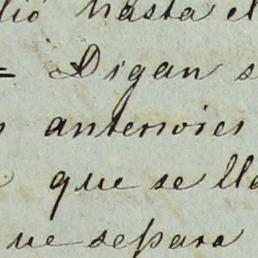 lió hasta el
= Digan s
anteriores
que se lla
ue separa